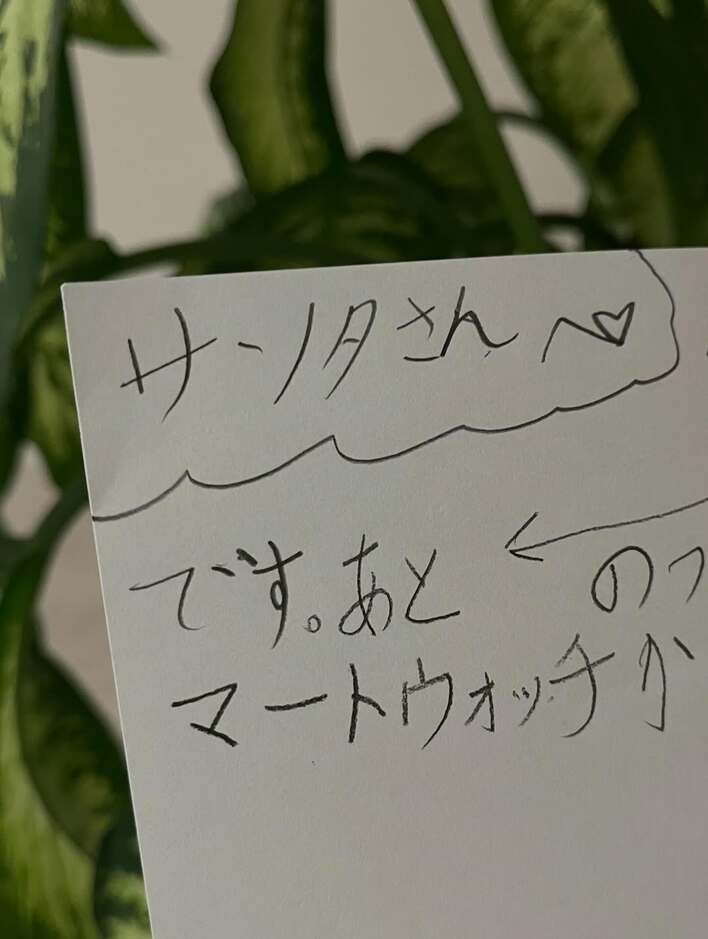 サンタさんへ♡
です。あと のっ
マートウォッチか